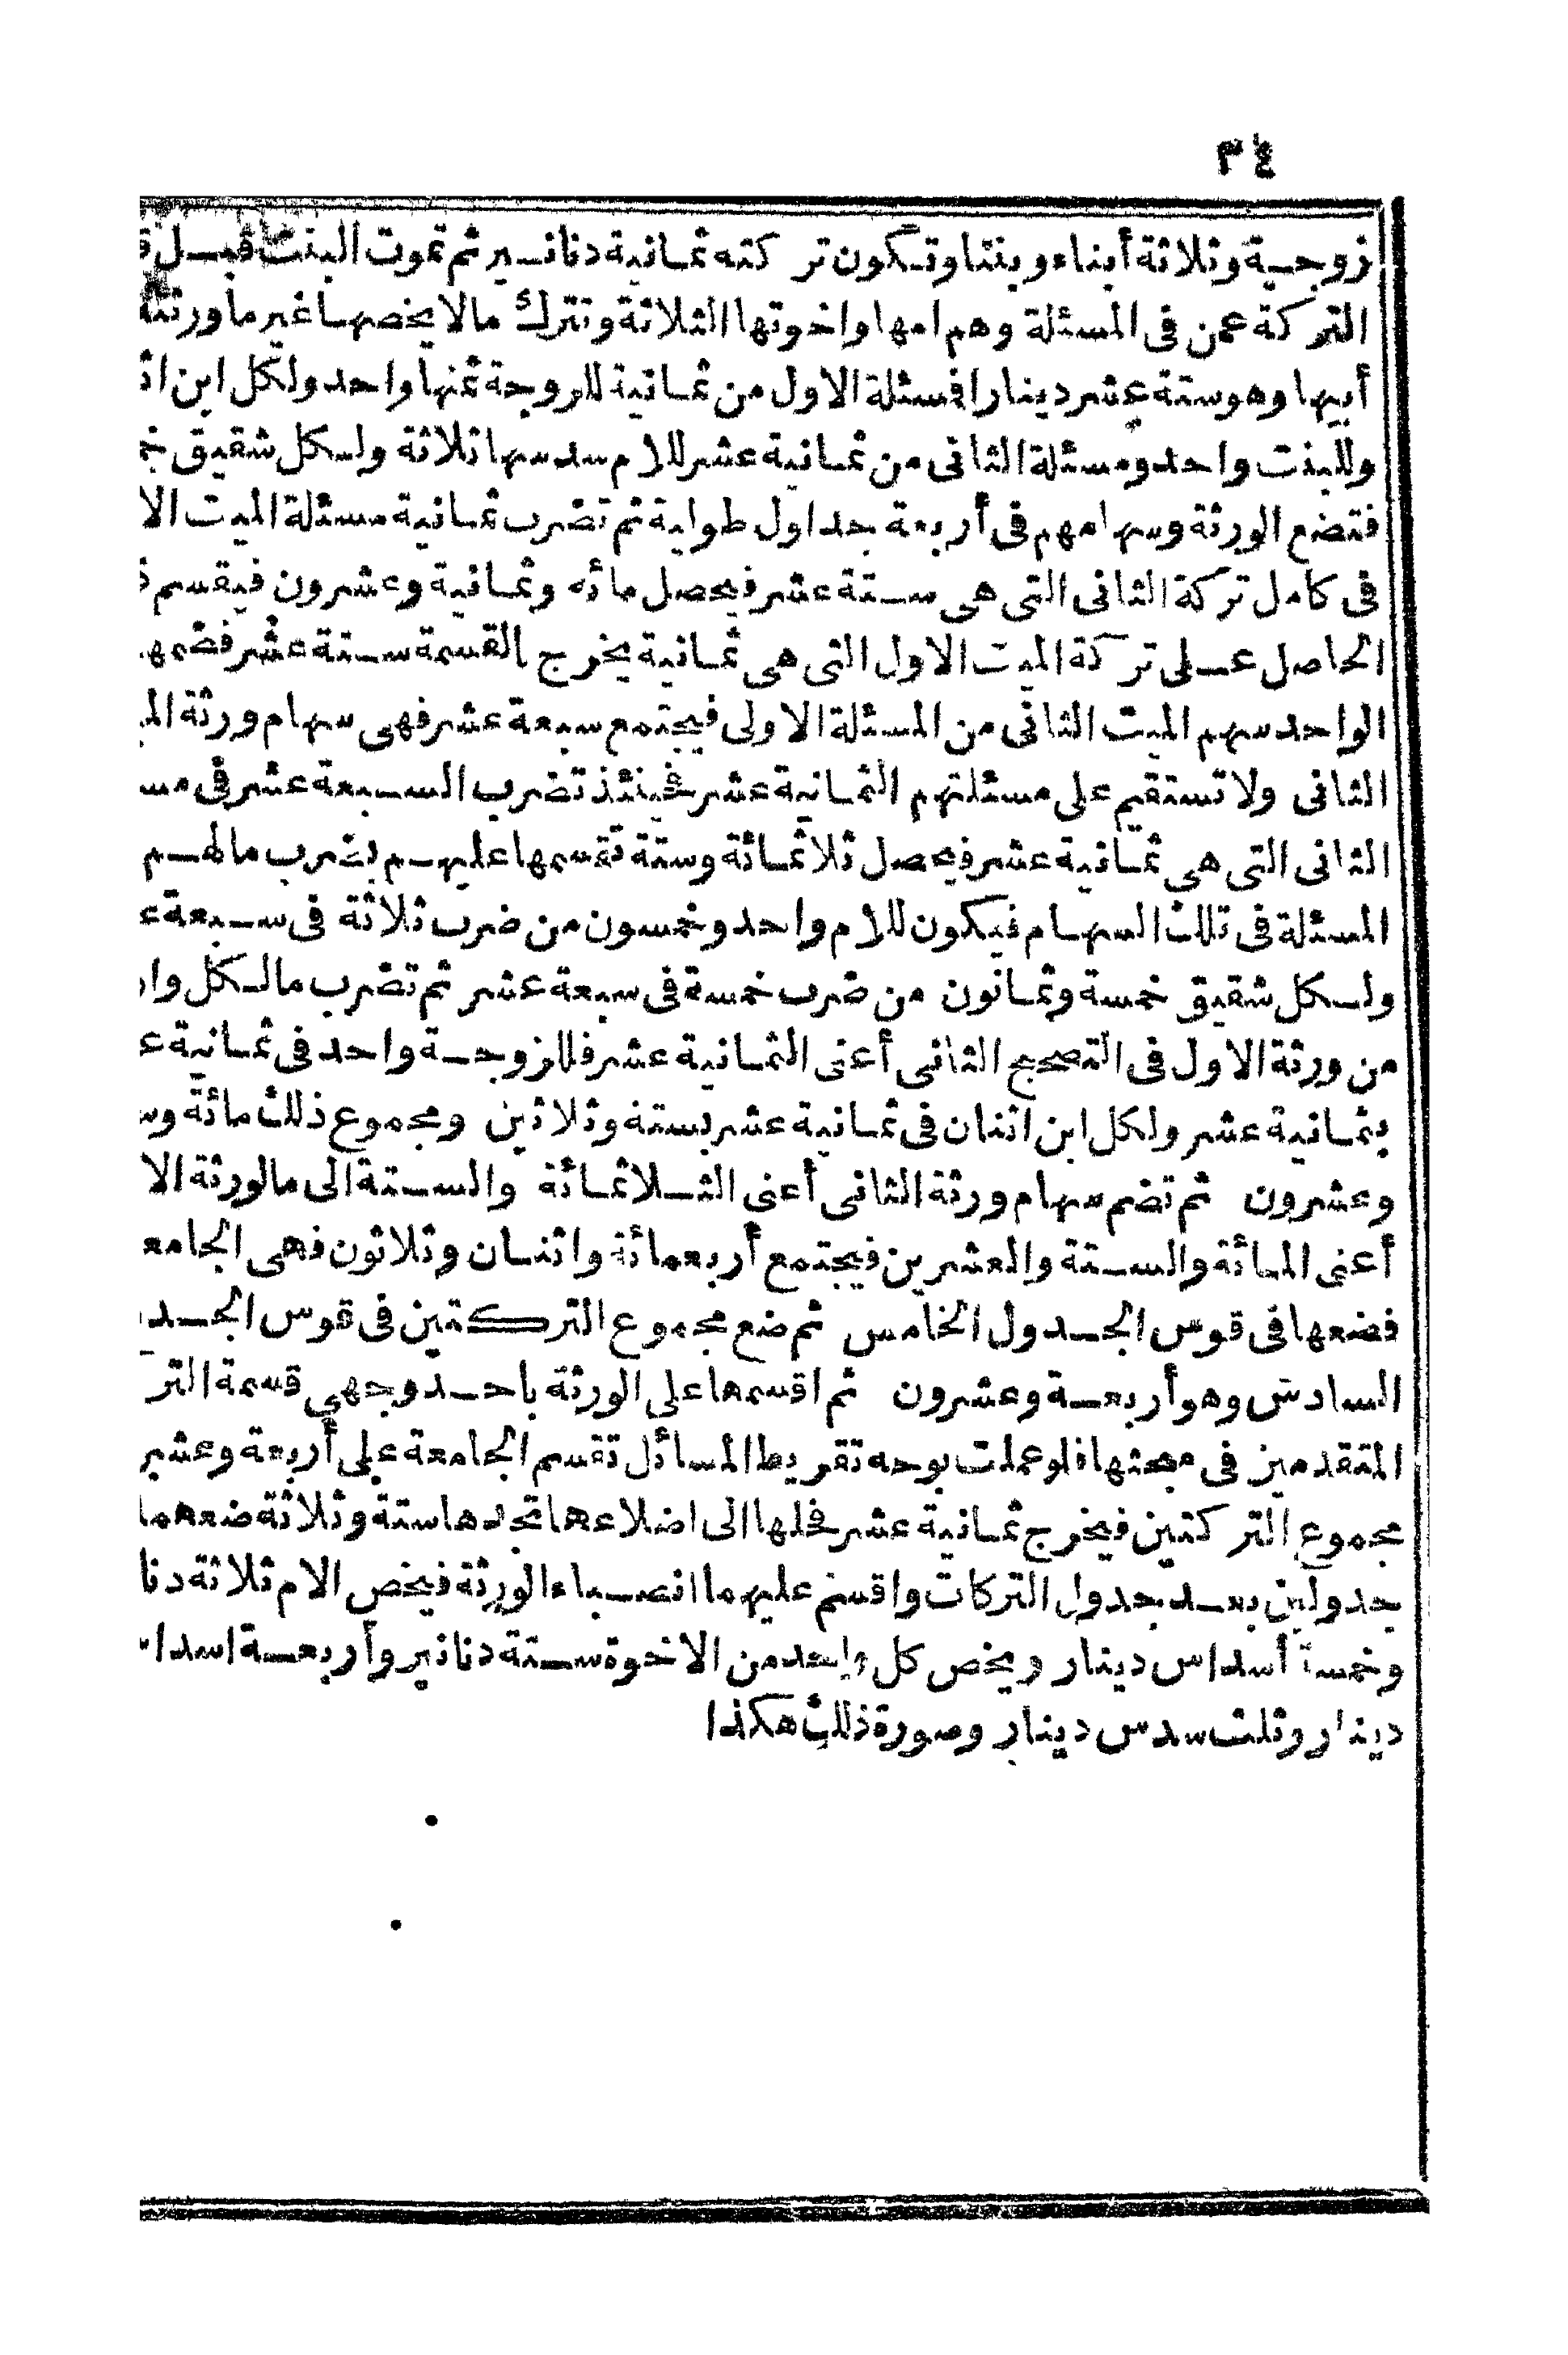 ٣٤
زوجة وثلاثة أبناء وبنتا وتكون تركته ثمانية دنانير ثم تموت البنت قبل
التركة عمن فى المسئلة وهم امها واخوتها الثلاثة وتترك مالا يخصها غير ما ورثته
أبيها وهو ستة عشر دينارا فسئلة الاول من ثمانية للزوجة ثمنها واحد ولكل ابن
وللبنت واحد ومسئلة الثانى من ثمانية عشر للام سدسها ثلاثة ولكل شقيق
فتضع الورثة وسهامهم فى أربعة جداول طولية ثم تضرب ثمانية مسئلة الميت الا
فى كامل تركة الثانى التى هى ستة عشر فيحصل مائة وثمانية وعشرون فيقسم
الحاصل على تركة الميت الاول التى هى ثمانية يخرج القسمة ستة عشر فضمها
الواحد سهم الميت الثانى من المسئلة الاولى فيجتمع سبعة عشر فهى سهام ورثة
الثانى ولا تستقيم على مسئلتهم الثمانية عشر فحينئذ تضرب السبعة عشر فى مس
الثانى التى هى ثمانية عشر فيحصل ثلاثمائة وستة تقسمها عليهم بضرب ما لهم
المسئلة فى تلك السهام فيكون للام واحد وخمسون من ضرب ثلاثة فى سبعة ع
ولكل شقيق خمسة وثمانون من ضرب خمسة فى سبعة عشر ثم تضرب ما لكل وا
من ورثة الاول فى التصحيح الثانى أعنى الثمانية عشر فللزوجة واحد فى ثمانية ع
بثمانية عشر ولكل ابن اثنان فى ثمانية عشر بستة وثلاثين ومجموع ذلك مائة وس
وعشرون ثم تضم سهام ورثة الثانى أعنى الثلاثمائة والستة الى ما لورثة الا
أعنى المائة والستة والعشرين فيجتمع أربعمائة واثنان وثلاثون فهى الجامع
فضعها فى قوس الجدول الخامس ثم ضع مجموع التركتين فى قوس الجد
السادس وهو أربعة وعشرون ثم اقسمها على الورثة باحد وجهى قسمة التر
المتقدمين فى مبحثها فلو عملت بوجه تقريط المسائل تقسم الجامعة على أربعة وعشر
مجموع التركتين فيخرج ثمانية عشر فحلها الى اضلاعها تجدها ستة وثلاثة ضعهما
جدولين بعد جدول التركات واقسم عليهما انصباء الورثة فيخص الام ثلاثة دنا
وخمسة أسداس دينار ويخص كل واحد من الاخوة ستة دنانير وأربعة اسدا
دينار وثلث سدس دينار وصورة ذلك هكذا